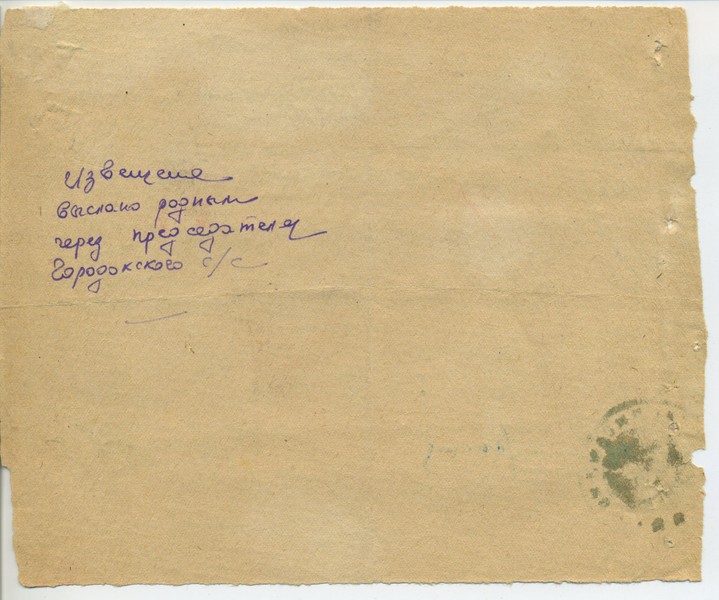 Извещение
выслано родным
через председателя
Городокского с/с